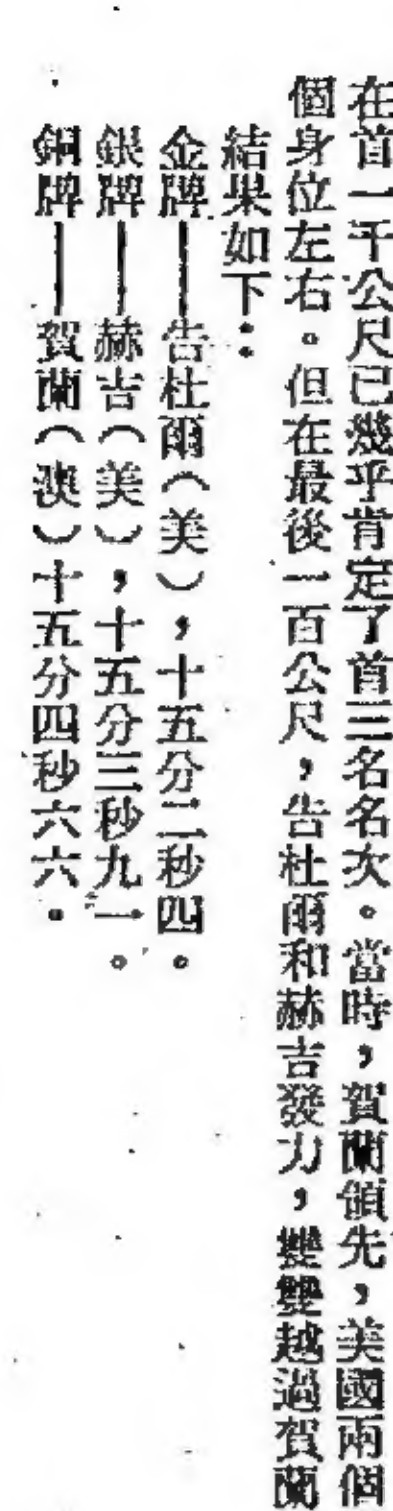 在首一千公尺已幾乎肯定了首三名名次。當時，賀蘭領先，美國兩個
個身位左右。但在最後一百公尺，告杜爾和赫吉發力，雙雙越過賀蘭
結果如下：
金牌——告杜爾（美），十五分二秒四。
銀牌——赫吉（美），十五分三秒九一。
銅牌——賀蘭（澳）十五分四秒六六。